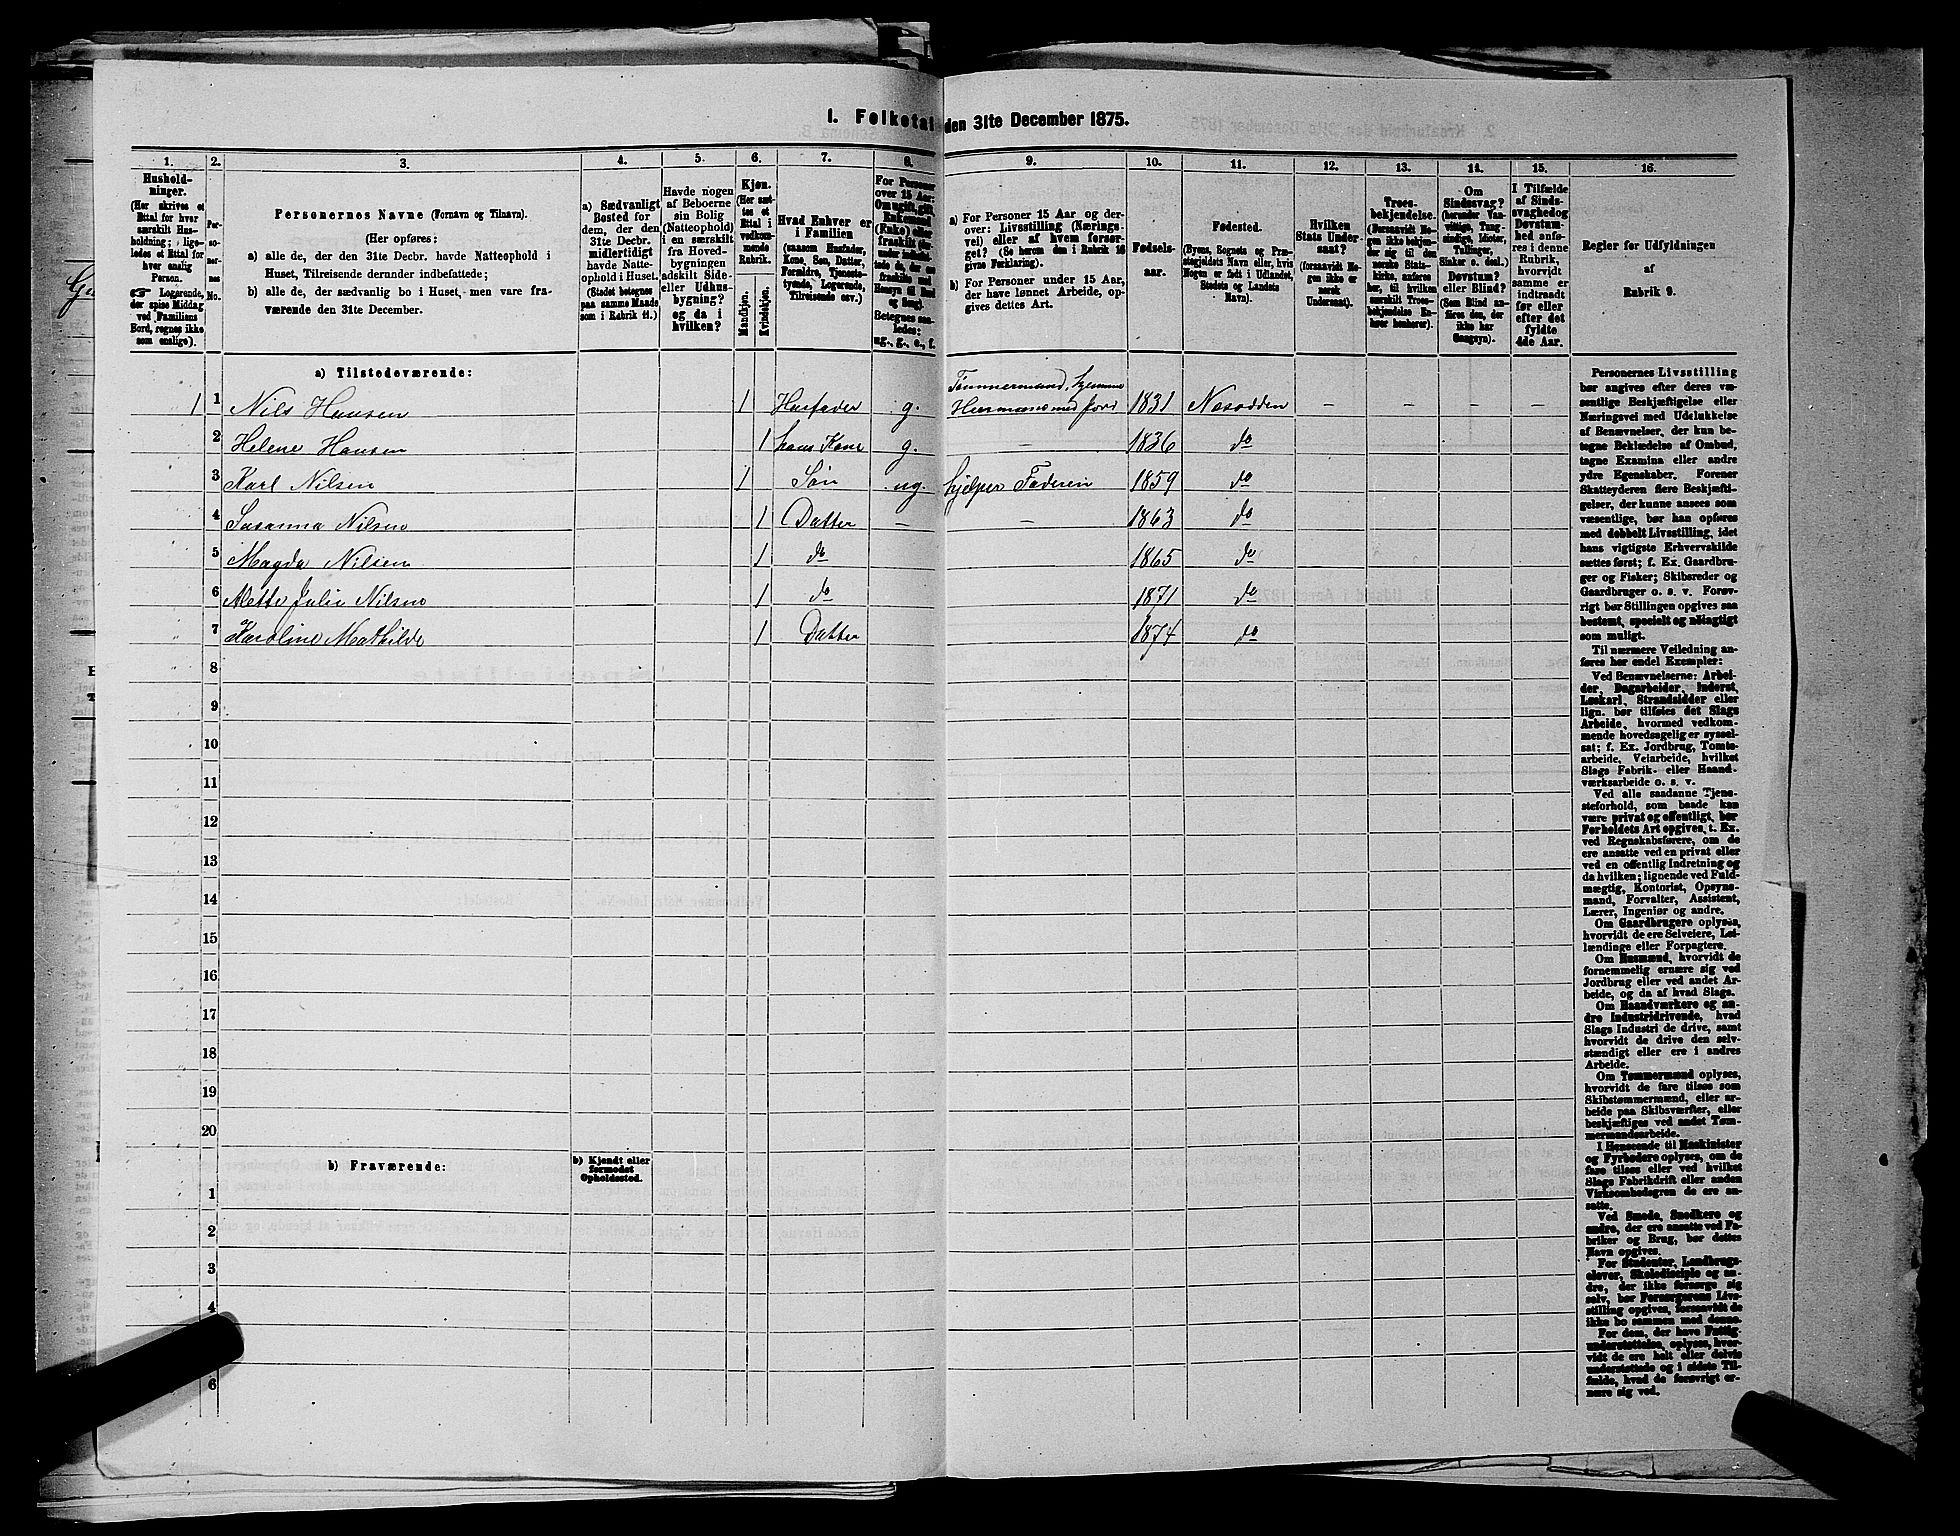 I. Folketal den 31te December 1875.
1.
2.
3.
4.
5.
6.
7.
8.
9.
10.
11.
12.
13.
14.
15.
16.
Hushold-
ninger.
(Her skrives et
Ettal for hver
særskilt Hus-
holdning; lige-
ledes et Ettal for
hver enslig
Person.
☞ Logerende,
der spise Middag
ved Familiens
Bord, regnes ikke
som enslige).
Per-
so-
ner-
nes
No.
Personernes Navne (Fornavn og Tilnavn).
(Her opføres:
a) alle de, der den 31te Decbr. havde Natteophold i
Huset, Tilreisende derunder indbefattede;
b) alle de, der sædvanlig bo i Huset, men vare fra-
værende den 31te December.
a) Sædvanligt
Bosted for
dem, der den
31te Decbr.
midlertidigt
havde Natte-
ophold i Huset.
(Stedet betegnes
paa samme Maade
som i Rubrik 11.)
Havde nogen
af Beboerne
sin Bolig
(Natteophold)
i en særskilt
fra Hoved-
bygningen
adskilt Side-
eller Udhus-
bygning?
og da i
hvilken?
Kjøn.
(Her sæt-
tes et
Ettal i
vedkom-
mende
Rubrik.
Mandkjøn.
Kvindekjøn.
Hvad Enhver er
i Familien
(saasom Husfader,
Kone, Søn, Datter,
Forældre, Tjeneste-
tyende, Logerende,
Tilreisende osv.)
For Personer
over 15 Aar:
Om ugift, gift,
Enkemand
(Enke) eller
fraskilt
Betegnes saa-
ledes:
ug., g., e., f.
a) For Personer 15 Aar og der-
over: Livsstilling (Nærings-
vei) eller af hvem forsør-
get? (Se herom den i Rubrik 16
givne Forklaring).
b) For Personer under 15 Aar,
der have lønnet Arbeide, op-
gives dettes Art.
Fødsels-
aar.
Fødested.
(Byens, Sognets og Præ-
stegjeldets Navn eller, hvis
Nogen er født i Udlandet,
Stedets og Landets
Navn).
Hvilken
Stats Under-
saat?
(forsaavidt No-
gen ikke er
norsk
Undersaat).
Troes-
bekjendelse.
(Forsaavidt No-
gen ikke bekjen-
der sig til den
norske Stats-
kirke, anføres
her, til hvilken
særskilt Troes-
bekjendelse En-
hver henhører).
Om
Sindssvag?
(herunder Van-
vittige, Tung-
sindige, Idioter,
Tullinger,
Sinker o. desl.)
Døvstum?
eller Blind?
(Som Blind an-
føres den, der
ikke har
Gangsyn).
I Tilfælde
af Sinds-
svaghed og
Døvstum-
hed anfø-
res i denne
Rubrik,
hvorvidt
samme er
indtraadt
før eller
efter det
fyldte
4de Aar.
Regler for Udfyldningen
af
Rubrik 9.
a) Tilstedeværende:
1 1 Nils Hansen 1 Husfader g. Tømmermand, hjemme
Huusmand med Jord 1831 Nesodden – – – –
2 Helene Hansen 1 hans Kone g. – 1836 do
3 Karl Nilsen 1 Søn ug. hjelper Faderen 1859 do
4 Susanna Nilsen 1 Datter – – 1863 do
5 Magda Nilsen 1 do 1865 do
6 Mette Julie Nilsen 1 do 1871 do
7 Karoline Mathilde 1 Datter 1874 do
8
9
10
11
12
13
14
15
16
17
18
19
20
b) Fraværende:
b) Kjendt eller
formodet
Opholdssted.
1
2
3
4
6
Personernes Livsstilling
bør angives efter deres væ-
sentlige Beskjæftigelse eller
Næringsvei med Udelukkelse
af Benævnelser, der kun be-
tegne Beklædelse af Ombud,
tagne Examina eller andre
ydre Egenskaber. Forener
Skatteyderen flere Beskjæfti-
gelser, der kunne ansees som
væsentlige, bør han opføres
med dobbelt Livsstilling, idet
hans vigtigste Erhvervskilde
sættes først; f. Ex. Gaardbru-
ger og Fisker; Skibsreder og
Gaardbruger o. s. v. Forøv-
rigt bør Stillingen opgives saa
bestemt, specielt og nøiagtigt
som muligt.
Til nærmere Veiledning an-
føres her endel Exempler:
Ved Benævnelserne: Arbei-
der, Dagarbeider, Inderst,
Løskarl, Strandsidder eller
lign. bør tilføies det Slags
Arbeide, hvormed vedkom-
mende hovedsagelig er syssel-
sat; f. Ex. Jordbrug, Tomte-
arbeide, Veiarbeide, hvilket
Slags Fabrik- eller Haand-
værksarbeide o. s. v.
Ved alle saadanne Tjene-
steforhold, som baade kan
være privat og offentligt, bør
Forholdets Art opgives, t. Ex.
ved Regnskabsførere, om de
ere ansatte ved en privat eller
ved en offentlig Indretning og
da hvilken; lignende ved Fuld-
mægtig, Kontorist, Opsyns-
mand, Forvalter, Assistent,
Lærer, Ingeniør og andre.
Om Gaardbrugere oplyses,
hvorvidt de ere Selveiere, Lei-
lændinge eller Forpagtere.
Om Husmænd, hvorvidt de
fornemmelig ernære sig ved
Jordbrug eller ved andet Ar-
beide, og da af hvad Slags.
Om Haandværkere og an-
dre Industridrivende, hvad
Slags Industri de drive, samt
hvorvidt de drive den selv-
stændigt eller ere i andres
Arbeide.
Om Tømmermænd oplyses,
hvorvidt de fare tilsøs som
Skibstømmermænd, eller ar-
beide paa Skibsværfter, eller
beskjæftiges ved andet Tøm-
mermandsarbeide.
I Henseende til Maskinister
og Fyrbødere oplyses, om de
fare tilsøs eller ved hvilket
Slags Fabrikdrift eller anden
Virksomhedsgren de ere an-
satte.
Ved Smede, Snedkere og
andre, der ere ansatte ved Fa-
briker og Brug, bør dettes
Navn opgives.
For Studenter, Landbrugs-
elever, Skoledisciple og an-
dre, der ikke forsørge sig
selv, bør Forsørgerens Livs-
stilling opgives, forsaavidt de
ikke bo sammen med denne.
For dem, der have Fattig-
understøttelse, oplyses, hvor-
vidt de ere helt eller delvis
understøttede og i sidste Til-
fælde, hvad de forøvrigt er-
nære sig ved.